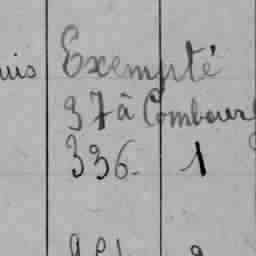 uis Exempté
37 à Combourg
336. 1